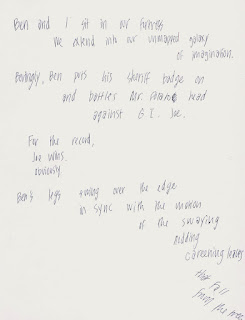 Ben and I sit in our fortress
We extend into our unmapped galaxy
of imagination.
Ben puts his sheriff badge on
and battles Mr. Potato head
against G.I. Joe.
For the record,
Joe wins.
obviously
Ben's legs swing over the edge
in sync with the motion
of the swaying
careening leaves
that fall
from the tree